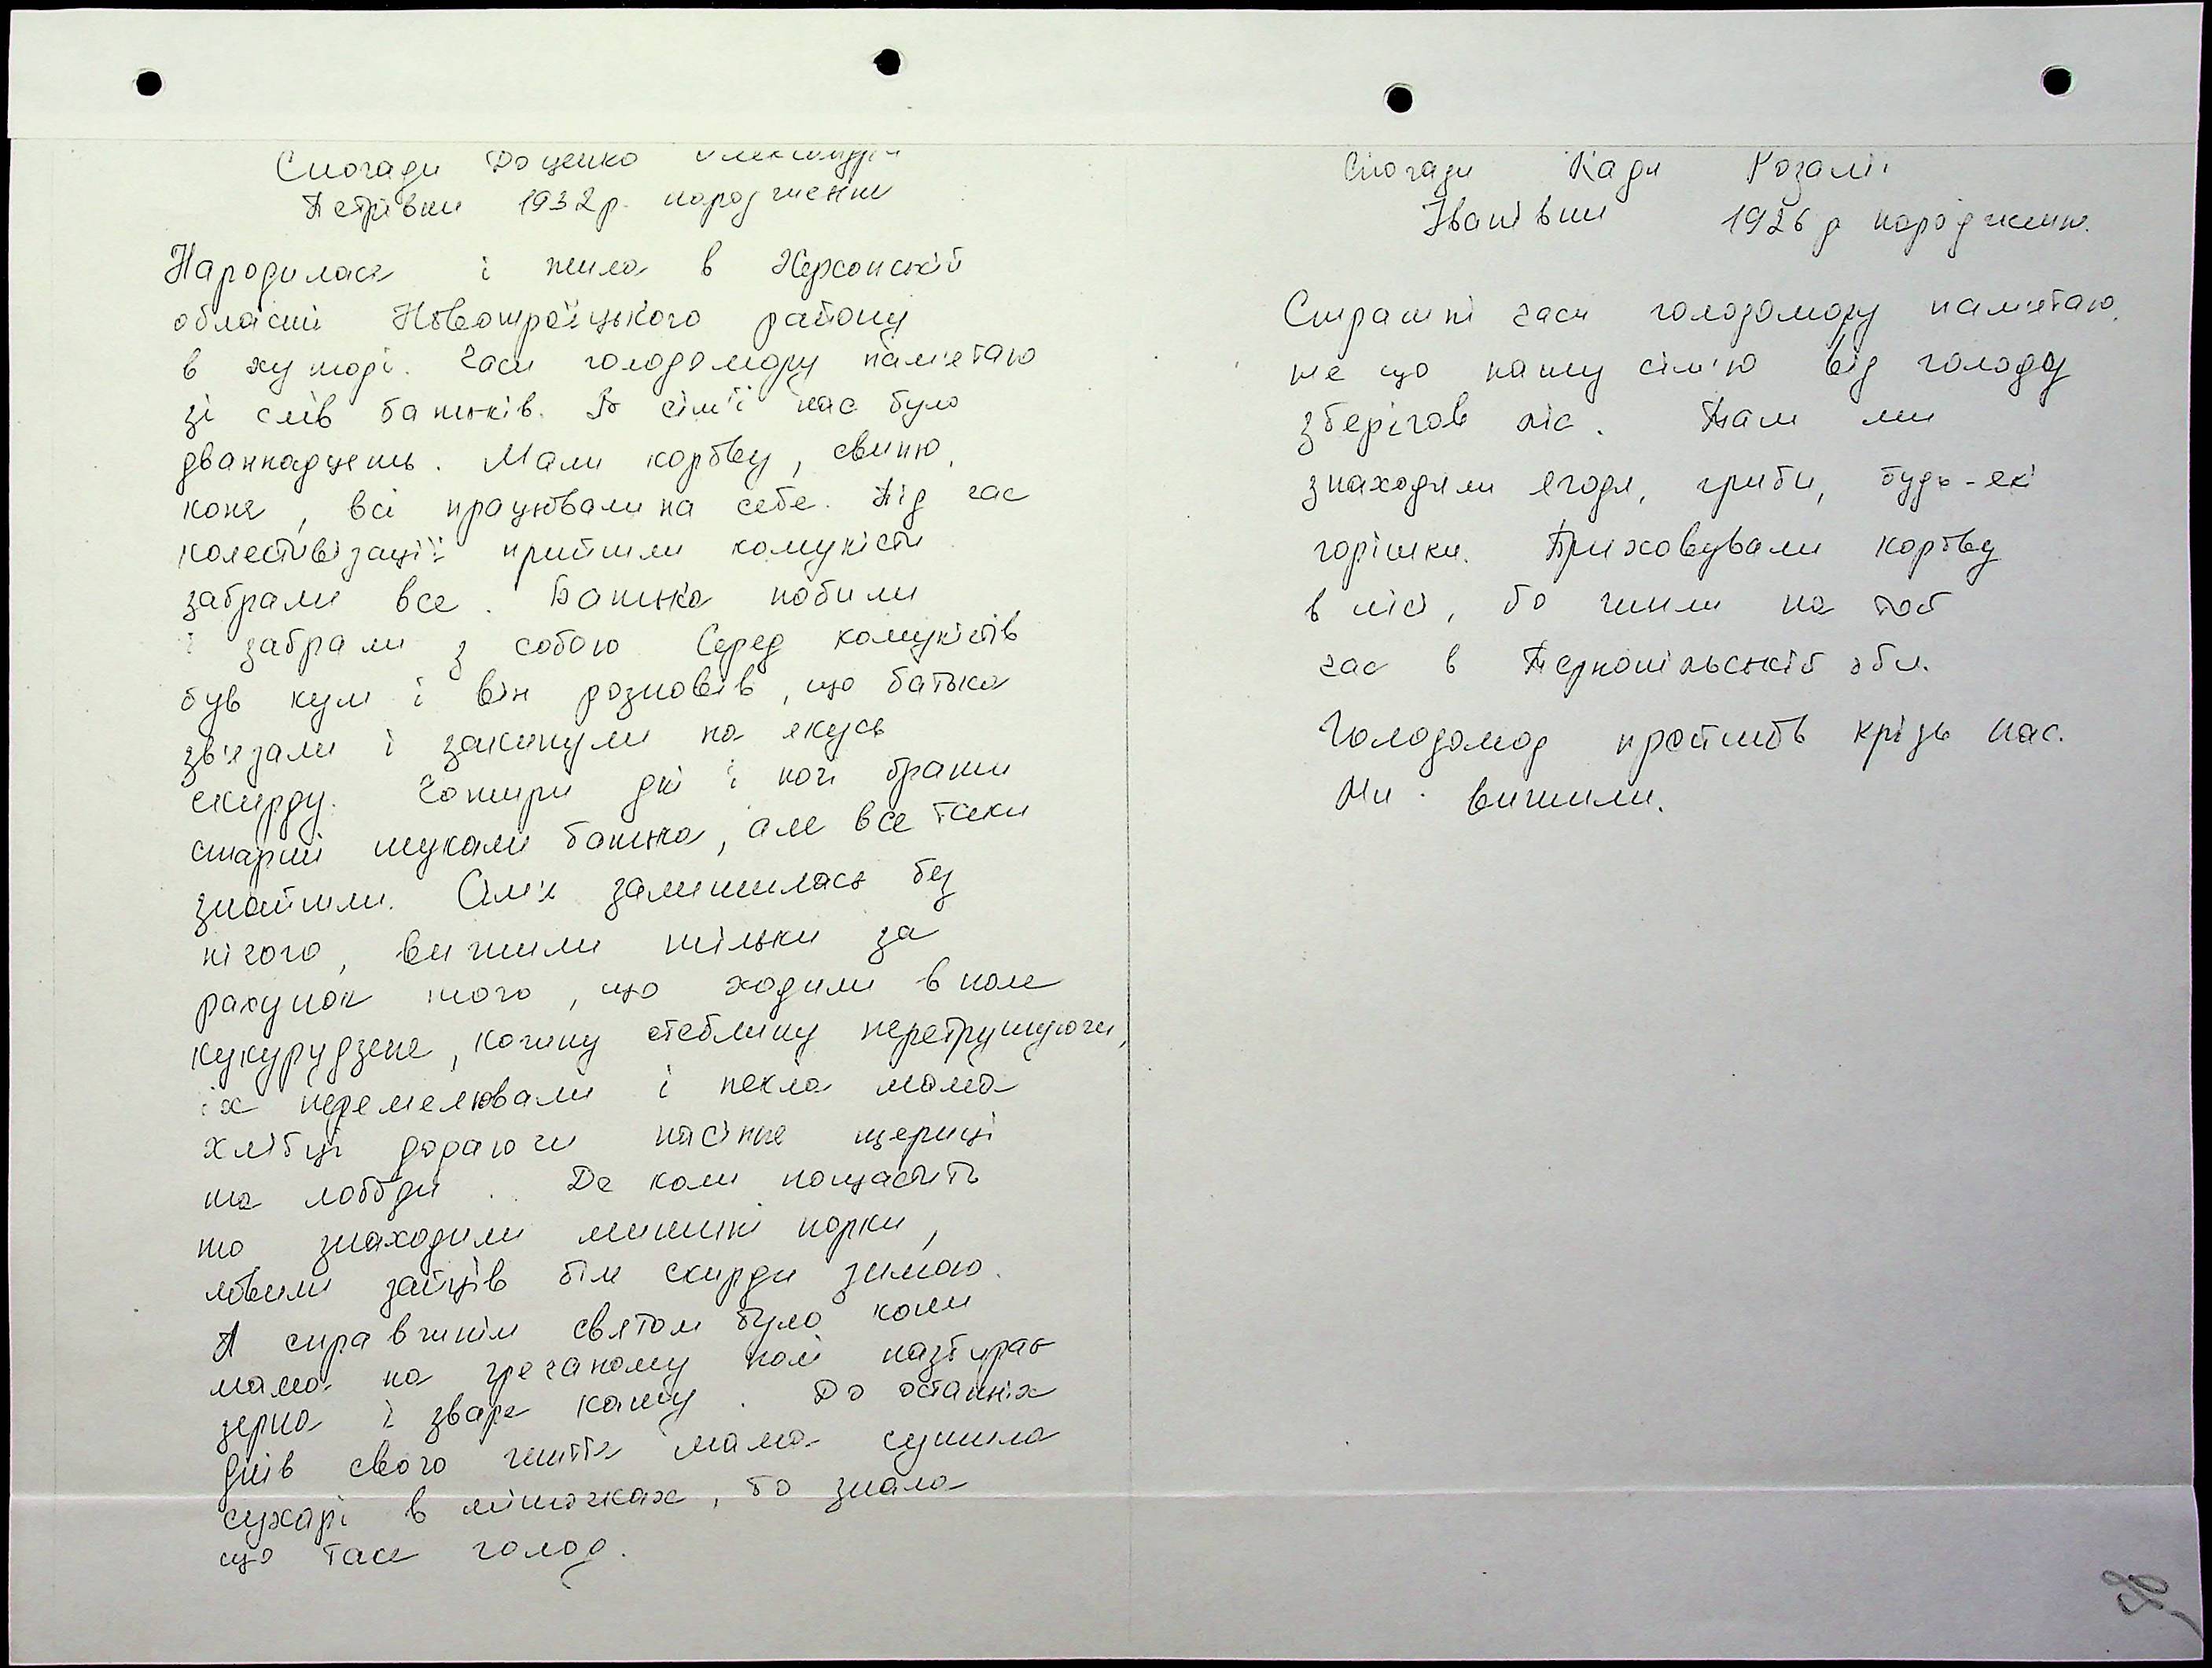 Спогади Доценко Олександри
Петрівни 1932р. народження
Народилася і жила в Херсонській
області Новотроїцького району
в хуторі. Часи голодомору пам'ятаю
зі слів батьків. В сім'ї нас було
дваннадцять. Мали корову, свиню,
коня, всі працювали на себе. Під час
колективізації прийшли комуністи
забрали все. Батька побили
і забрали з собою. Серед комуністів
був кум і він розповів, що батька
зв'язали і закинули на якусь
скирду. Чотири дні і ночі брати
старші шукали батька, але все таки
знайшли. Сім'я залишилась без
нічого, вижили тільки за
рахунок того, що ходили в поле
кукурудзяне, кожну стеблину перетрушуючи,
їх перемелювали і пекла мама
хлібці додаючи насіння щериці
та лободи. Де коли пощастить
то знаходили мишині норки,
ловили зайців біля скирди зимою.
А справжнім святом було коли
мама на гречаному полі назбирає
зерна і зваре кашу. До останніх
днів свого життя мама сушила
сухарі в мішочках, бо знала
що таке голод.
Спогади Кади Розалії
Іванівни 1926 р народження.
Страшні часи голодомору пам'ятаю,
те що нашу сім'ю від голоду
зберігав ліс. Там ми
знаходили ягоди, гриби, будь-які
горішки. Приховували корову
в лісі, бо жили на той
час в Тернопільській обл.
Голодомор пройшов крізь нас.
Ми вижили.